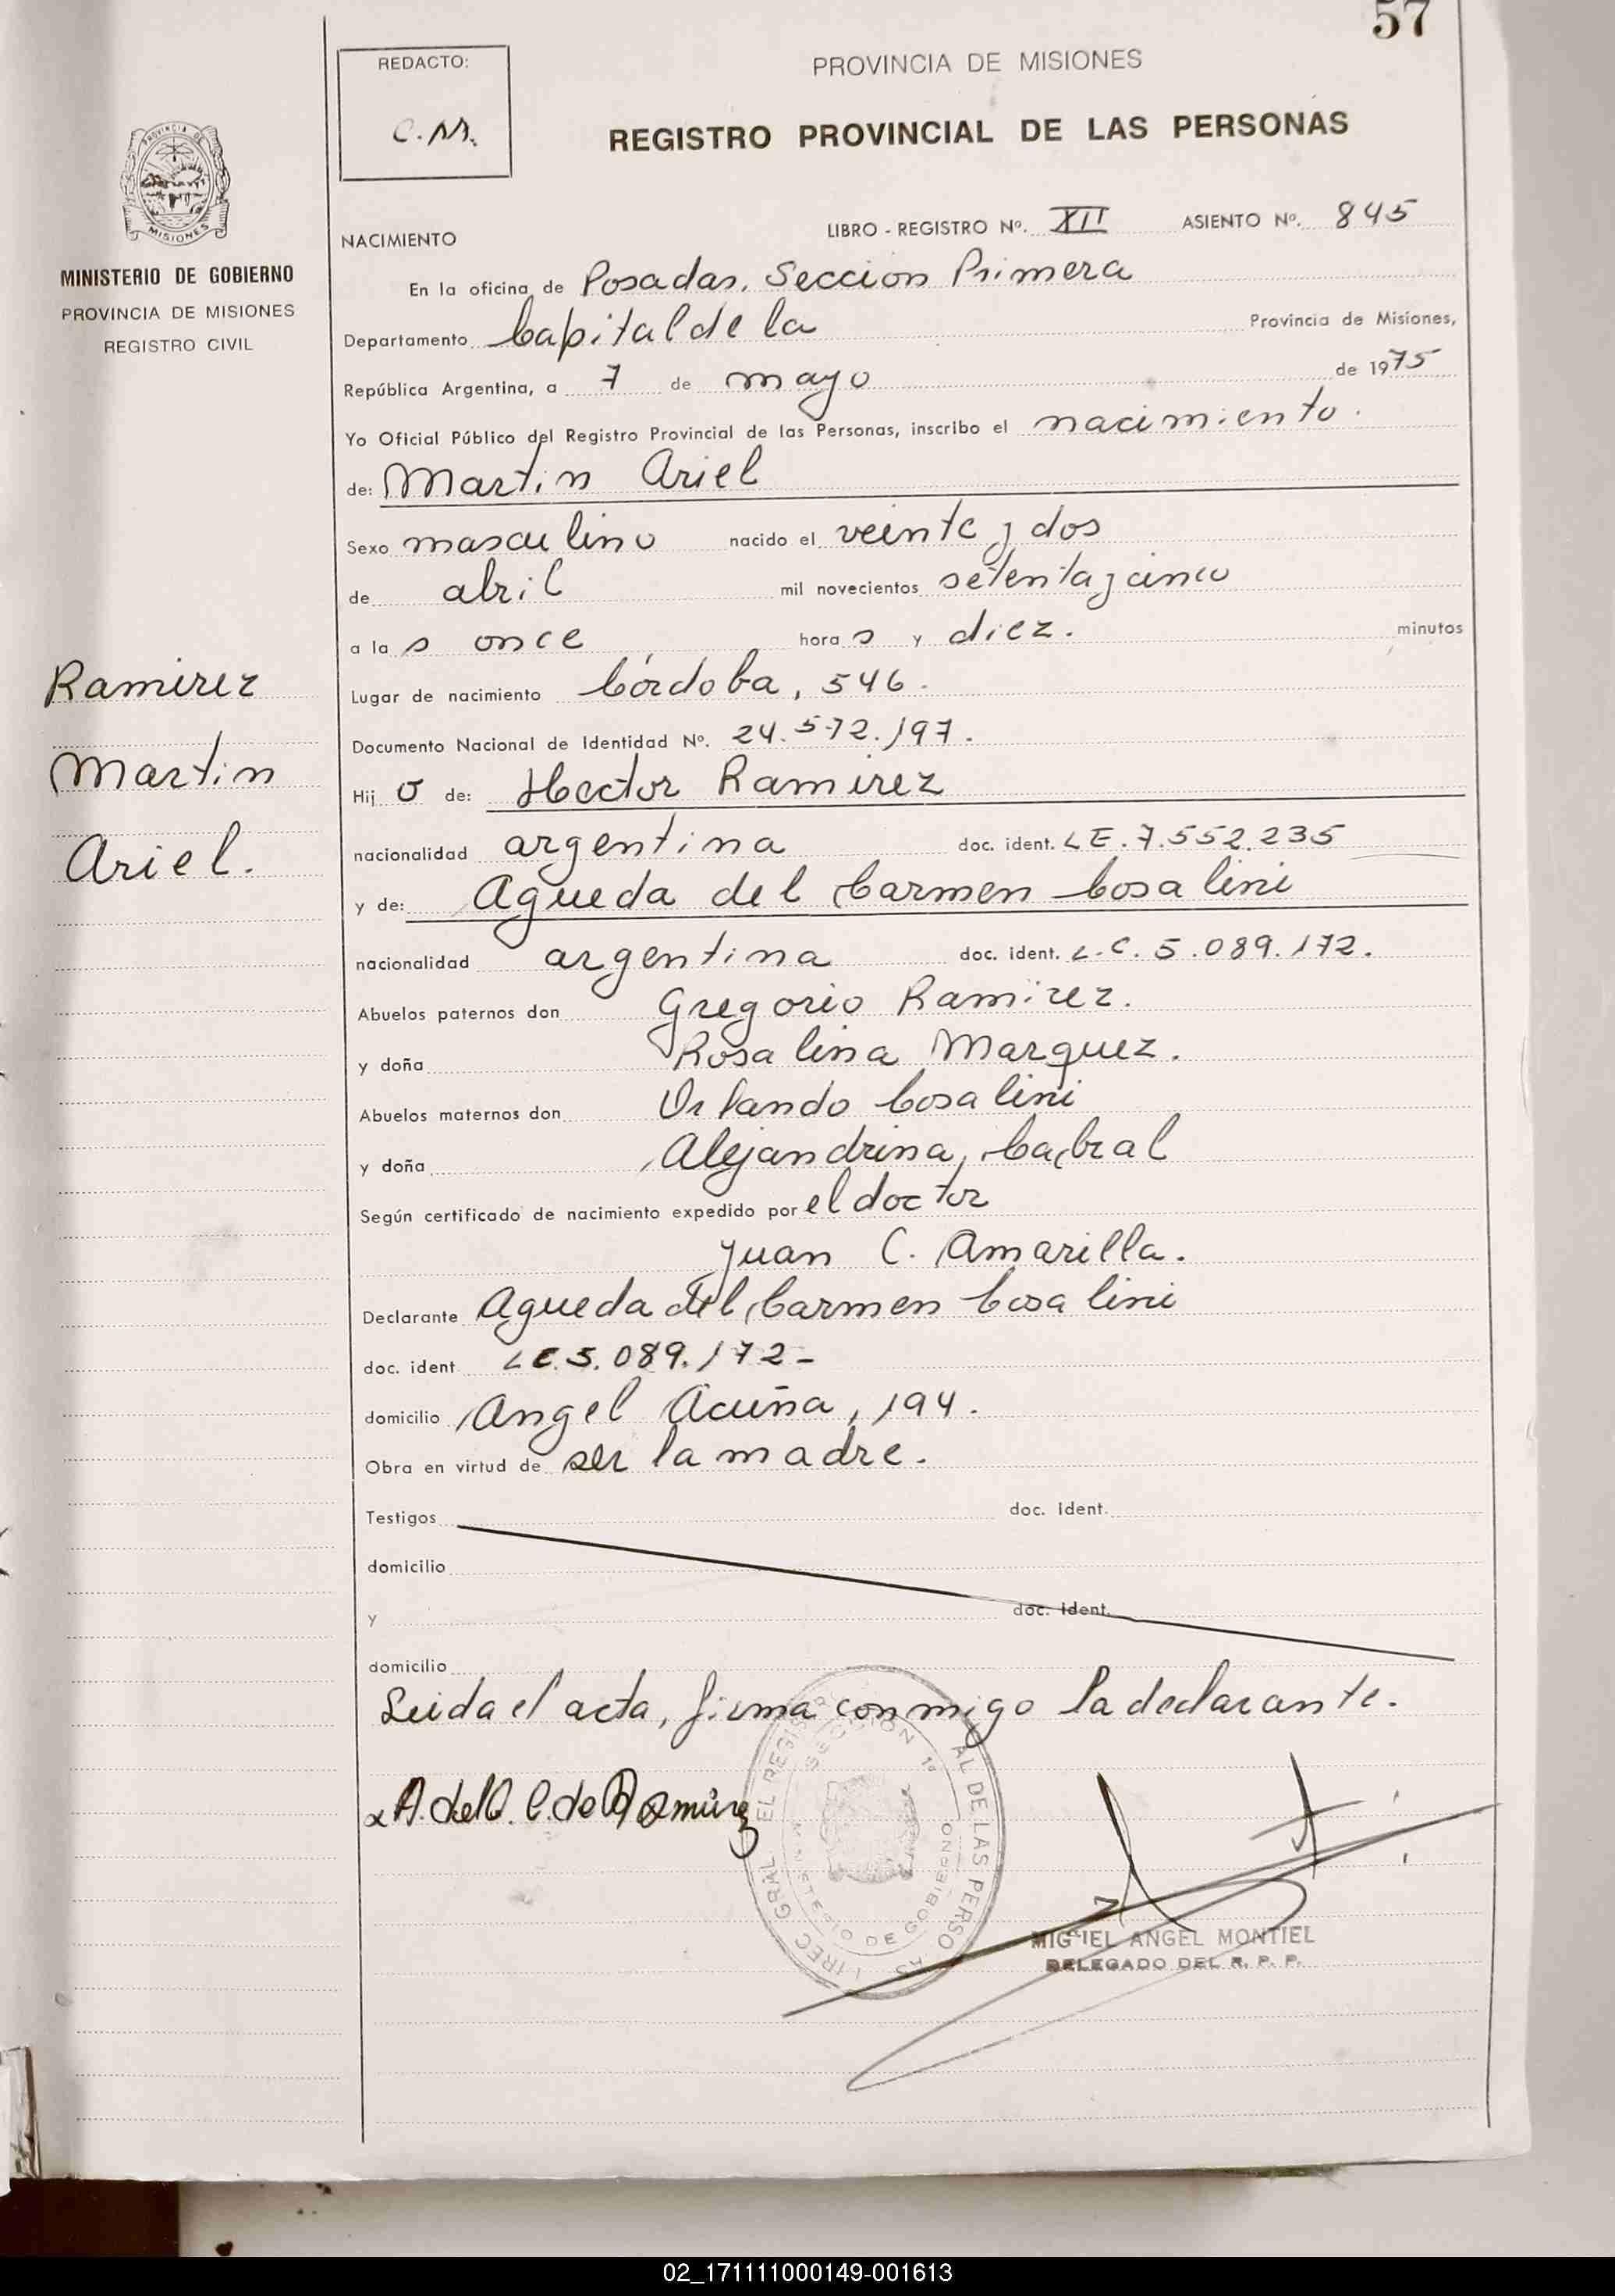 57
REDACTO:
C.M.
PROVINCIA DE MISIONES
REGISTRO PROVINCIAL DE LAS PERSONAS
PROVINCIA DE
MISIONES
MINISTERIO DE GOBIERNO
PROVINCIA DE MISIONES
REGISTRO CIVIL
NACIMIENTO
LIBRO - REGISTRO Nº. XII ASIENTO Nº. 845
En la oficina de Posadas, Seccion Primera
Departamento Capital de la Provincia de Misiones,
República Argentina, a 7 de mayo de 1975
Yo Oficial Público del Registro Provincial de las Personas, inscribo el nacimiento.
de: Martin Ariel
Sexo masculino nacido el veinte y dos
de abril mil novecientos setenta y cinco
a la s once hora s y diez. minutos
Lugar de nacimiento Córdoba, 546.
Documento Nacional de Identidad Nº. 24.572.197.
Hij o de: Hector Ramirez
nacionalidad argentina doc. ident. LE. 7.552.235
y de: Agueda del Carmen Cosalini
nacionalidad argentina doc. ident. L.C. 5.089.172.
Abuelos paternos don Gregorio Ramirez.
y doña Rosalina Marquez.
Abuelos maternos don Orlando Cosalini
y doña Alejandrina Cabral
Según certificado de nacimiento expedido por el doctor
Juan C. Amarilla.
Declarante Agueda del Carmen Cosalini
doc. ident. LC. 5.089.172-
domicilio Angel Acuña, 194.
Obra en virtud de ser la madre.
Testigos doc. ident.
domicilio
y doc. ident.
domicilio
Leida el acta, firma conmigo la declarante.
Ramirez
Martin
Ariel.
x A. del C. C. de Ramirez
SECCION 1ª
MINISTERIO DE GOBIERNO
MIGUEL ANGEL MONTIEL
DELEGADO DEL R. P. P.
02_171111000149-001613